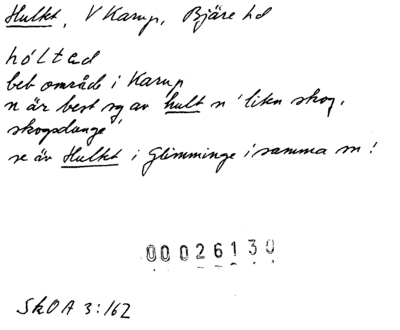 Hulkt, V Karup, Bjäre hd
hóltəd
beb område i Karup
n är best sg av hult n 'liten skog,
skogsdunge'
se äv Hulkt i Glimminge i samma sn!
00026130
SkOA 3:162